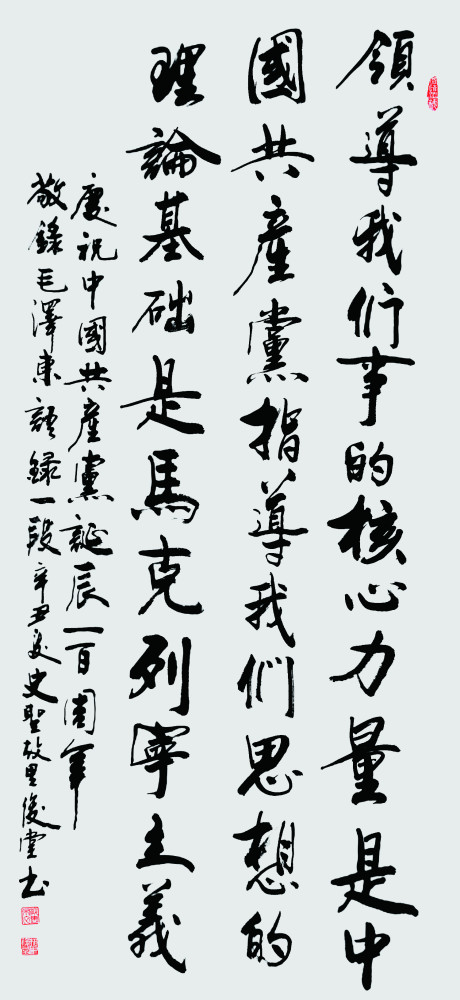 領導我们事的核心力量是中
國共產黨指導我們思想的
理論基础是馬克列寧主義
慶祝中國共產黨誕辰一百周年
敬錄毛澤東語録一段辛丑夏史聖故里堂书